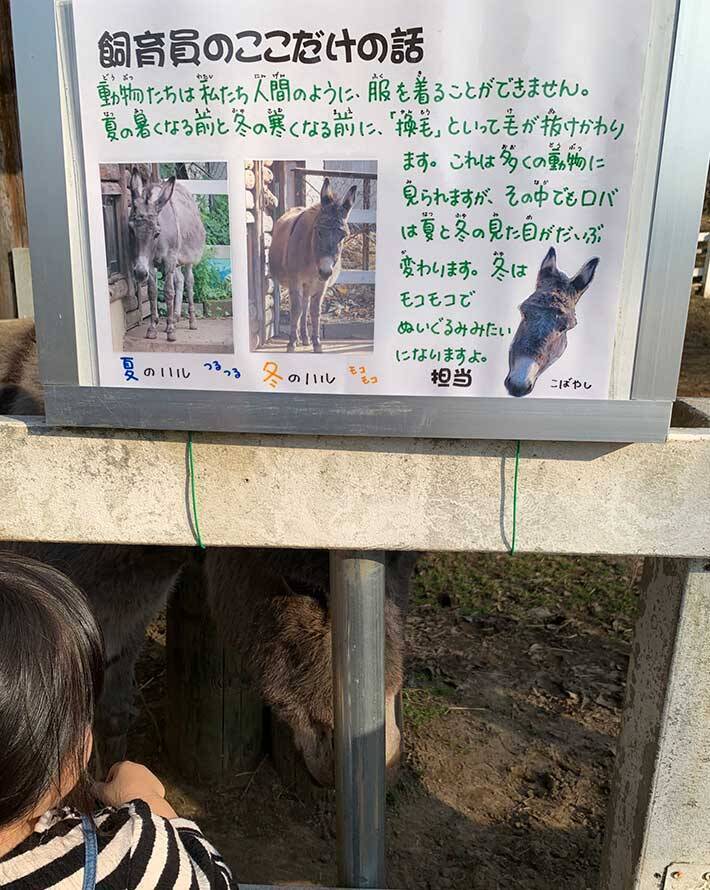 飼育員のここだけの話
動物たちは私たち人間のように、服を着ることができません。
夏の暑くなる前と冬の寒くなる前に、「換毛」といって毛が抜けかわり
ます。これは多くの動物に
見られますが、その中でもロバ
は夏と冬の見た目がだいぶ
変わります。冬は
モコモコで
ぬいぐるみみたい
になりますよ。
夏のハル つるつる
冬のハル モコモコ
担当
こばやし